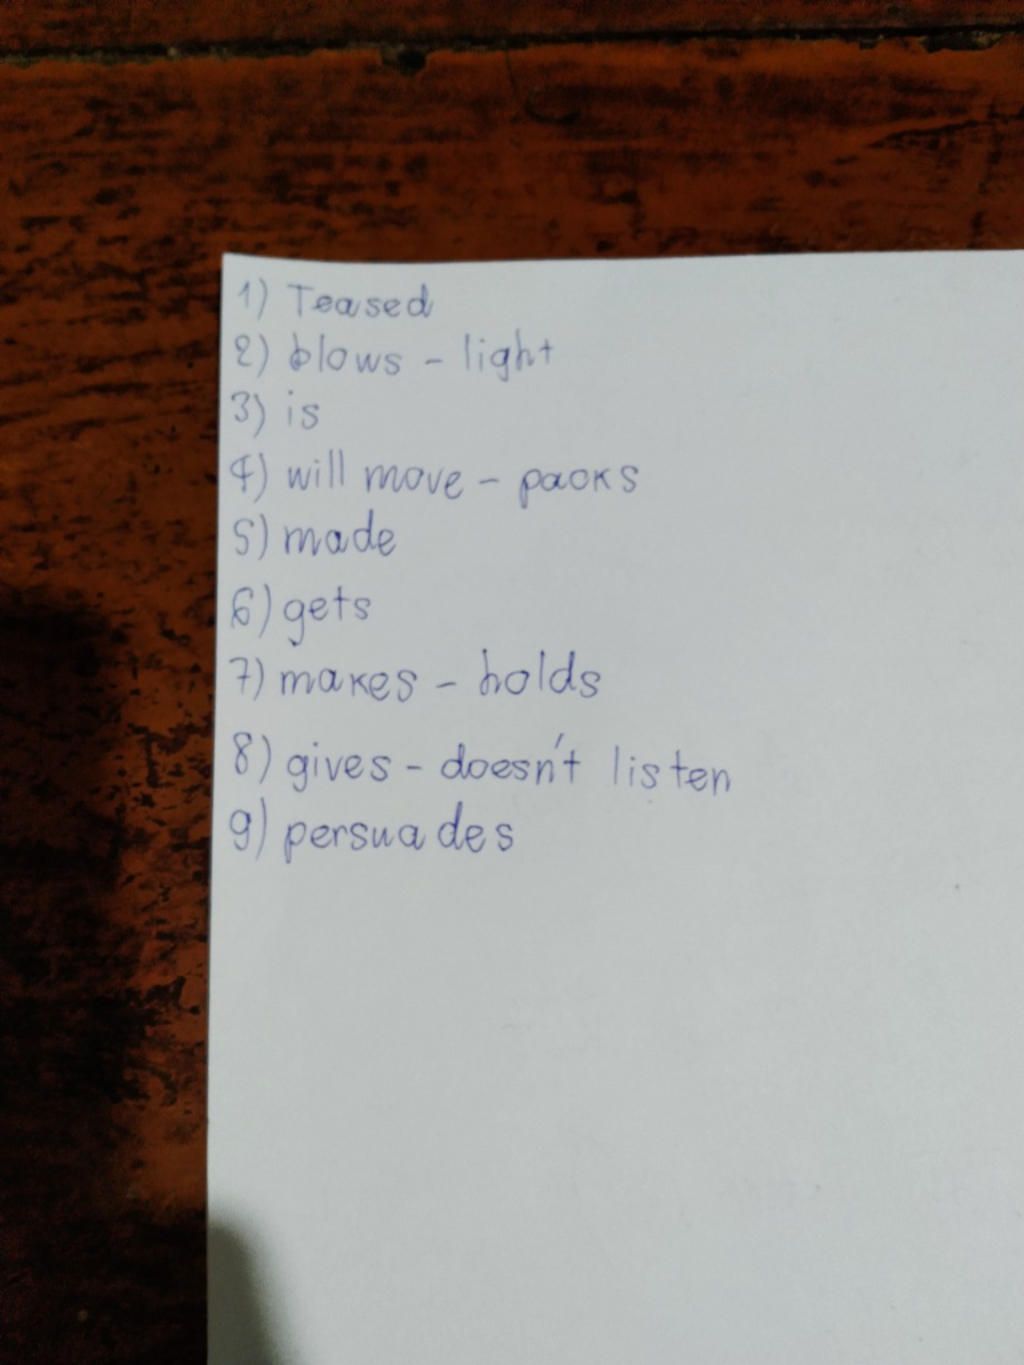 1) Teased
2) blows - light
3) is
4) will move - packs
5) made
6) gets
7) makes - holds
8) gives - doesn't listen
9) persuades